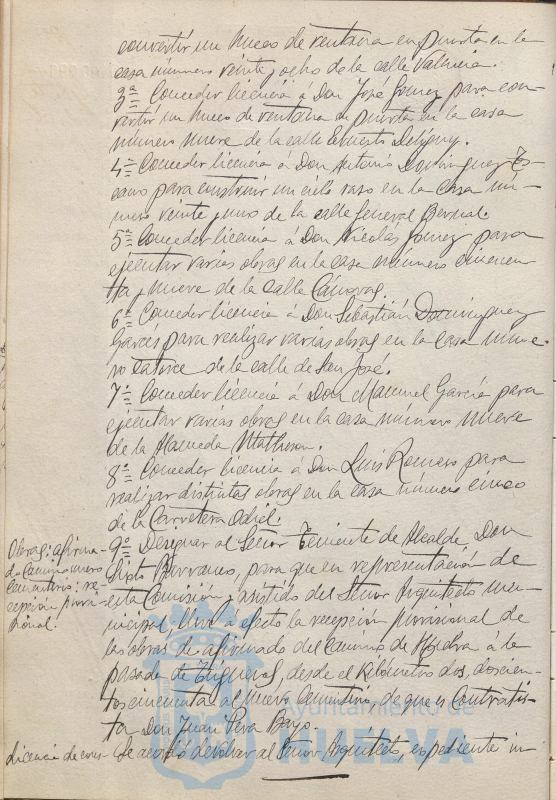 convertir un hueco de ventana en puerta en la
casa número veinte y ocho de la calle Valencia.
3ª Conceder licencia á Don José Gómez para con-
vertir un hueco de ventana en puerta en la casa
número nueve de la calle Ernesto Deligny.
4ª Conceder licencia á Don Antonio Domínguez
cano para construir un cielo raso en la casa nú-
mero veinte y uno de la calle General Bernal.
5ª Conceder licencia á Don Nicolás Gómez para
ejecutar varias obras en la casa número cincuen-
ta y nueve de la calle Cánovas.
6ª Conceder licencia á Don Sebastián Domínguez
Garcés para realizar varias obras en la casa núme-
ro catorce de la calle de San José.
7ª Conceder licencia á Don Manuel García para
ejecutar varias obras en la casa número nueve
de la Alameda Matheson.
8ª Conceder licencia á Don Luis Romero para
realizar distintas obras en la casa número cinco
de la Carretera Odiel.
Obras: afirma-
do Camino nuevo
Cementerio: re-
cepción provi-
sional.
9ª Designar al Señor Teniente de Alcalde Don
Sixto Barranco, para que en representación de
esta Comisión y asistido del Señor Arquitecto mu-
nicipal lleve a efecto la recepción provisional de
las obras de afirmado del camino de Huelva á la
pasada de Higueral, desde el kilómetro dos, doscien-
tos cincuenta al nuevo Cementerio de que es Contratis-
ta Don Juan Pera Bayo.
Licencia de cons-
Se acordó devolver al Señor Arquitecto, expediente in-
Ayuntamiento de
HUELVA